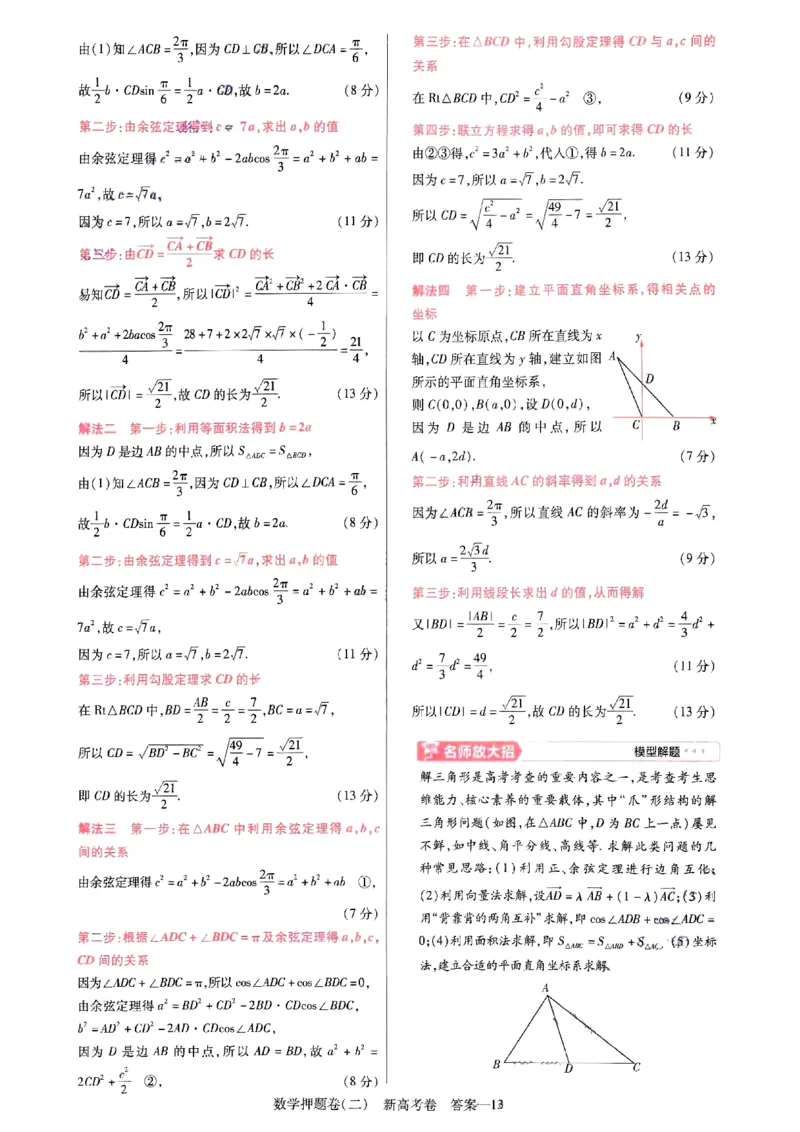 由(1)知∠ACB=2π/3,因为 CD⊥CB,所以∠DCA=π/6,
故1/2 b·CDsin π/6=1/2 a·CD,故 b=2a. (8分)
第二步:由余弦定理得到 c=√7a,求出 a,b 的值
由余弦定理得 c²=a²+b²-2abcos 2π/3=a²+b²+ab=
7a²,故 c=√7a,
因为 c=7,所以 a=√7,b=2√7. (11分)
第三步:由CD→=(CA→+CB→)/2 求 CD 的长
易知CD→=(CA→+CB→)/2,所以|CD→|²=(CA→²+CB→²+2CA→·CB→)/4=
(b²+a²+2bacos 2π/3)/4=(28+7+2×2√7×√7×(-1/2))/4=21/4,
所以|CD→|=√21/2,故 CD 的长为√21/2. (13分)
解法二 第一步:利用等面积法得到 b=2a
因为 D 是边 AB 的中点,所以 S△ADC=S△BCD,
由(1)知∠ACB=2π/3,因为 CD⊥CB,所以∠DCA=π/6,
故1/2 b·CDsin π/6=1/2 a·CD,故 b=2a. (8分)
第二步:由余弦定理得到 c=√7a,求出 a,b 的值
由余弦定理得 c²=a²+b²-2abcos 2π/3=a²+b²+ab=
7a²,故 c=√7a,
因为 c=7,所以 a=√7,b=2√7. (11分)
第三步:利用勾股定理求 CD 的长
在 Rt△BCD 中,BD=AB/2=c/2=7/2,BC=a=√7,
所以 CD=√(BD²-BC²)=√(49/4-7)=√21/2,
即 CD 的长为√21/2. (13分)
解法三 第一步:在△ABC 中利用余弦定理得 a,b,c
间的关系
由余弦定理得 c²=a²+b²-2abcos 2π/3=a²+b²+ab ①,
(7分)
第二步:根据∠ADC+∠BDC=π及余弦定理得 a,b,c,
CD 间的关系
因为∠ADC+∠BDC=π,所以 cos∠ADC+cos∠BDC=0,
由余弦定理得 a²=BD²+CD²-2BD·CDcos∠BDC,
b²=AD²+CD²-2AD·CDcos∠ADC,
因为 D 是边 AB 的中点,所以 AD=BD,故 a²+b²=
2CD²+c²/2 ②, (8分)
第三步:在△BCD 中,利用勾股定理得 CD 与 a,c 间的
关系
在 Rt△BCD 中,CD²=c²/4-a² ③, (9分)
第四步:联立方程求得 a,b 的值,即可求得 CD 的长
由②③得,c²=3a²+b²,代入①,得 b=2a. (11分)
因为 c=7,所以 a=√7,b=2√7.
所以 CD=√(c²/4-a²)=√(49/4-7)=√21/2,
即 CD 的长为√21/2. (13分)
解法四 第一步:建立平面直角坐标系,得相关点的
坐标
以 C 为坐标原点,CB 所在直线为 x
轴,CD 所在直线为 y 轴,建立如图
所示的平面直角坐标系,
则 C(0,0),B(a,0),设 D(0,d),
因为 D 是边 AB 的中点,所以
A(-a,2d). (7分)
y
A
D
C
B
x
第二步:利用直线 AC 的斜率得到 a,d 的关系
因为∠ACB=2π/3,所以直线 AC 的斜率为-2d/a=-√3,
所以 a=2√3d/3. (9分)
第三步:利用线段长求出 d 的值,从而得解
又|BD|=|AB|/2=c/2=7/2,所以|BD|²=a²+d²=4/3 d²+
d²=7/3 d²=49/4, (11分)
所以|CD|=d=√21/2,故 CD 的长为√21/2. (13分)
名师放大招 模型解题
解三角形是高考考查的重要内容之一,是考查考生思
维能力、核心素养的重要载体,其中“爪”形结构的解
三角形问题(如图,在△ABC 中,D 为 BC 上一点)屡见
不鲜,如中线、角平分线、高线等.求解此类问题的几
种常见思路:(1)利用正、余弦定理进行边角互化;
(2)利用向量法求解,设AD→=λAB→+(1-λ)AC→;(3)利
用“背靠背的两角互补”求解,即 cos∠ADB+cos∠ADC=
0;(4)利用面积法求解,即 S△ABC=S△ABD+S△AC;(5)坐标
法,建立合适的平面直角坐标系求解.
A
B
D
C
数学押题卷(二) 新高考卷 答案—13